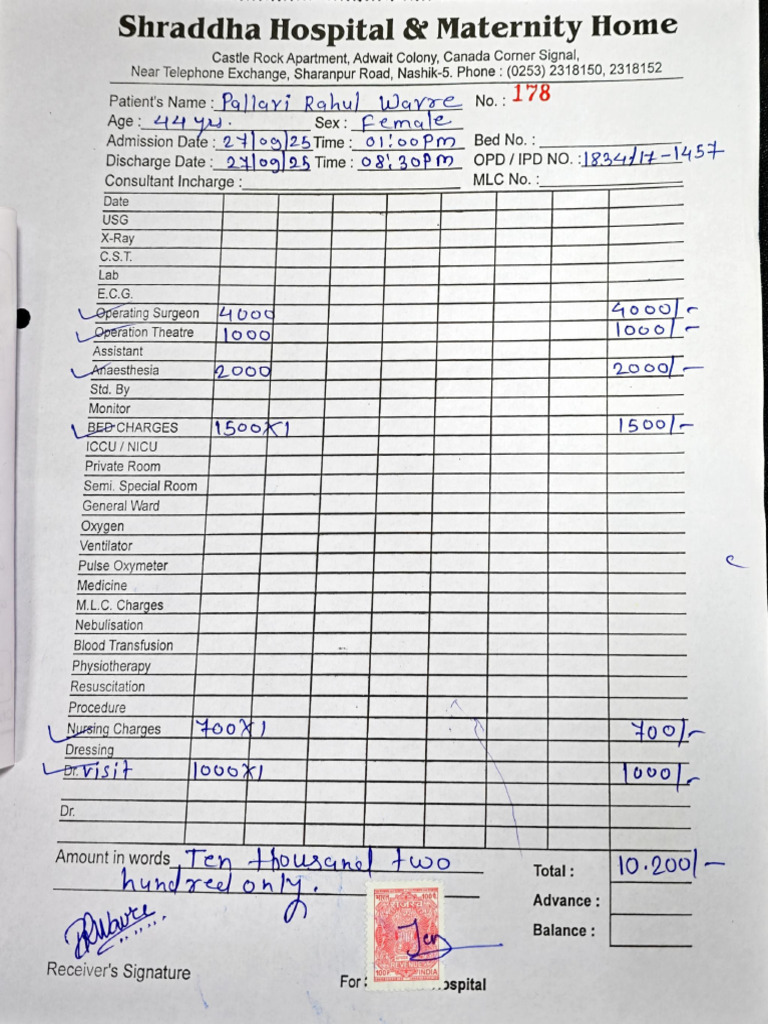 Shraddha Hospital & Maternity Home
Castle Rock Apartment, Adwait Colony, Canada Corner Signal,
Near Telephone Exchange, Sharanpur Road, Nashik-5. Phone : (0253) 2318150, 2318152
Patient's Name : Pallavi Rahul Wavre No. : 178
Age : 44 yrs. Sex : Female
Admission Date : 27/09/25 Time : 01:00 PM Bed No. :
Discharge Date : 27/09/25 Time : 08:30 PM OPD / IPD NO. : 1834/17-1457
Consultant Incharge : MLC No. :
Date
USG
X-Ray
C.S.T.
Lab
E.C.G.
Operating Surgeon 4000 4000/-
Operation Theatre 1000 1000/-
Assistant
Anaesthesia 2000 2000/-
Std. By
Monitor
BED CHARGES 1500X1 1500/-
ICCU / NICU
Private Room
Semi. Special Room
General Ward
Oxygen
Ventilator
Pulse Oxymeter
Medicine
M.L.C. Charges
Nebulisation
Blood Transfusion
Physiotherapy
Resuscitation
Procedure
Nursing Charges 700X1 700/-
Dressing
Dr. visit 1000X1 1000/-
Dr.
Amount in words Ten thousand two Total : 10.200/-
hundred only. Advance :
Balance :
Receiver's Signature
For : ospital
100P INDIA